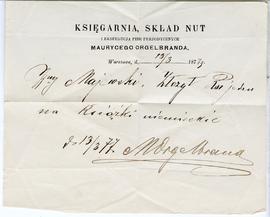 KSIĘGARNIA, SKŁAD NUT
I EKSPEDYCJA PISM PERJODYCZNYCH
MAURYCEGO ORGELBRANDA.
Warszawa, d. 13/3 1877
Majewski. złożył Rs jeden
na Książki niemieckie
do 13/3 77. MOrgelbrand